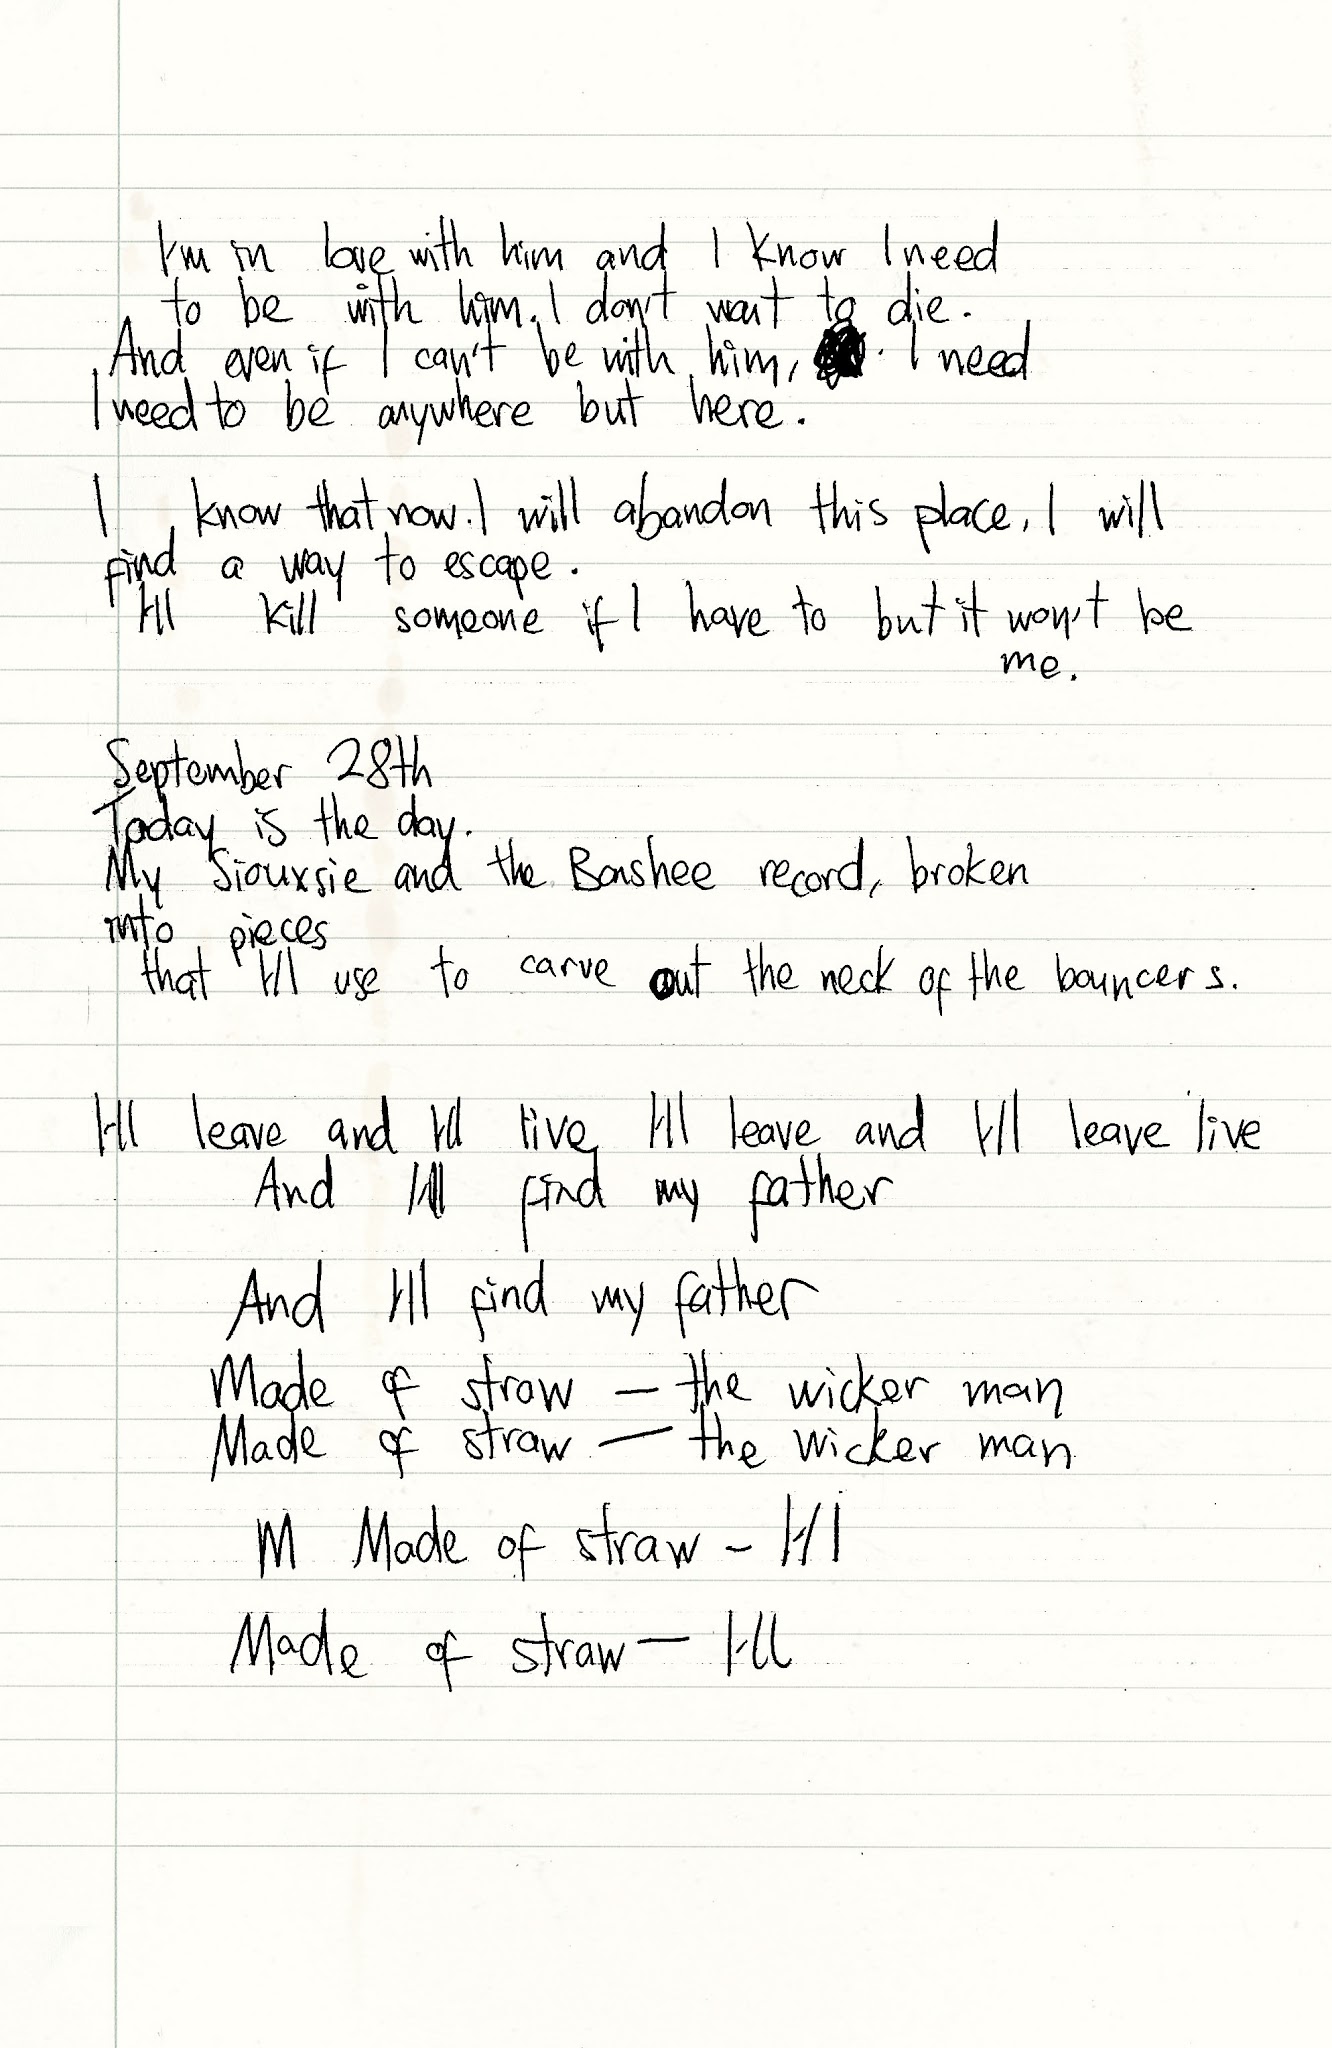 I'm in love with him and I know I need
to be with him. I don't want to die.
And even if I can't be with him, I need
I need to be anywhere but here.
I know that now. I will abandon this place, I will
find a way to escape.
I'll kill someone if I have to but it won't be
me.
September 28th
Today is the day.
My Siouxsie and the Banshee record, broken
into pieces
that I'll use to carve out the neck of the bouncers.
I'll leave and I'll live, I'll leave and I'll leave live
And I'll find my father
And I'll find my father
Made of straw — the wicker man
Made of straw — the wicker man
M Made of straw - I'll
Made of straw — I'll